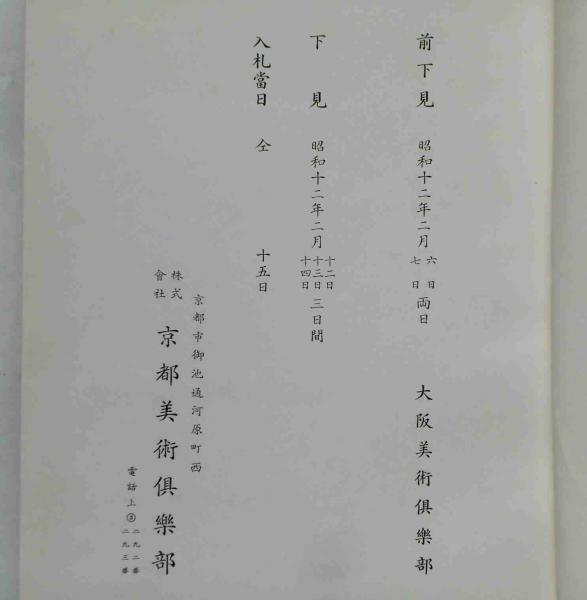 前下見 昭和十二年二月 六日 七日 両日 大阪美術倶樂部
下見 昭和十二年二月 十二日 十三日 十四日 三日間
入札當日 仝 十五日
京都市御池通河原町西
株式會社 京都美術倶樂部
電話上 二九二番 二九三番